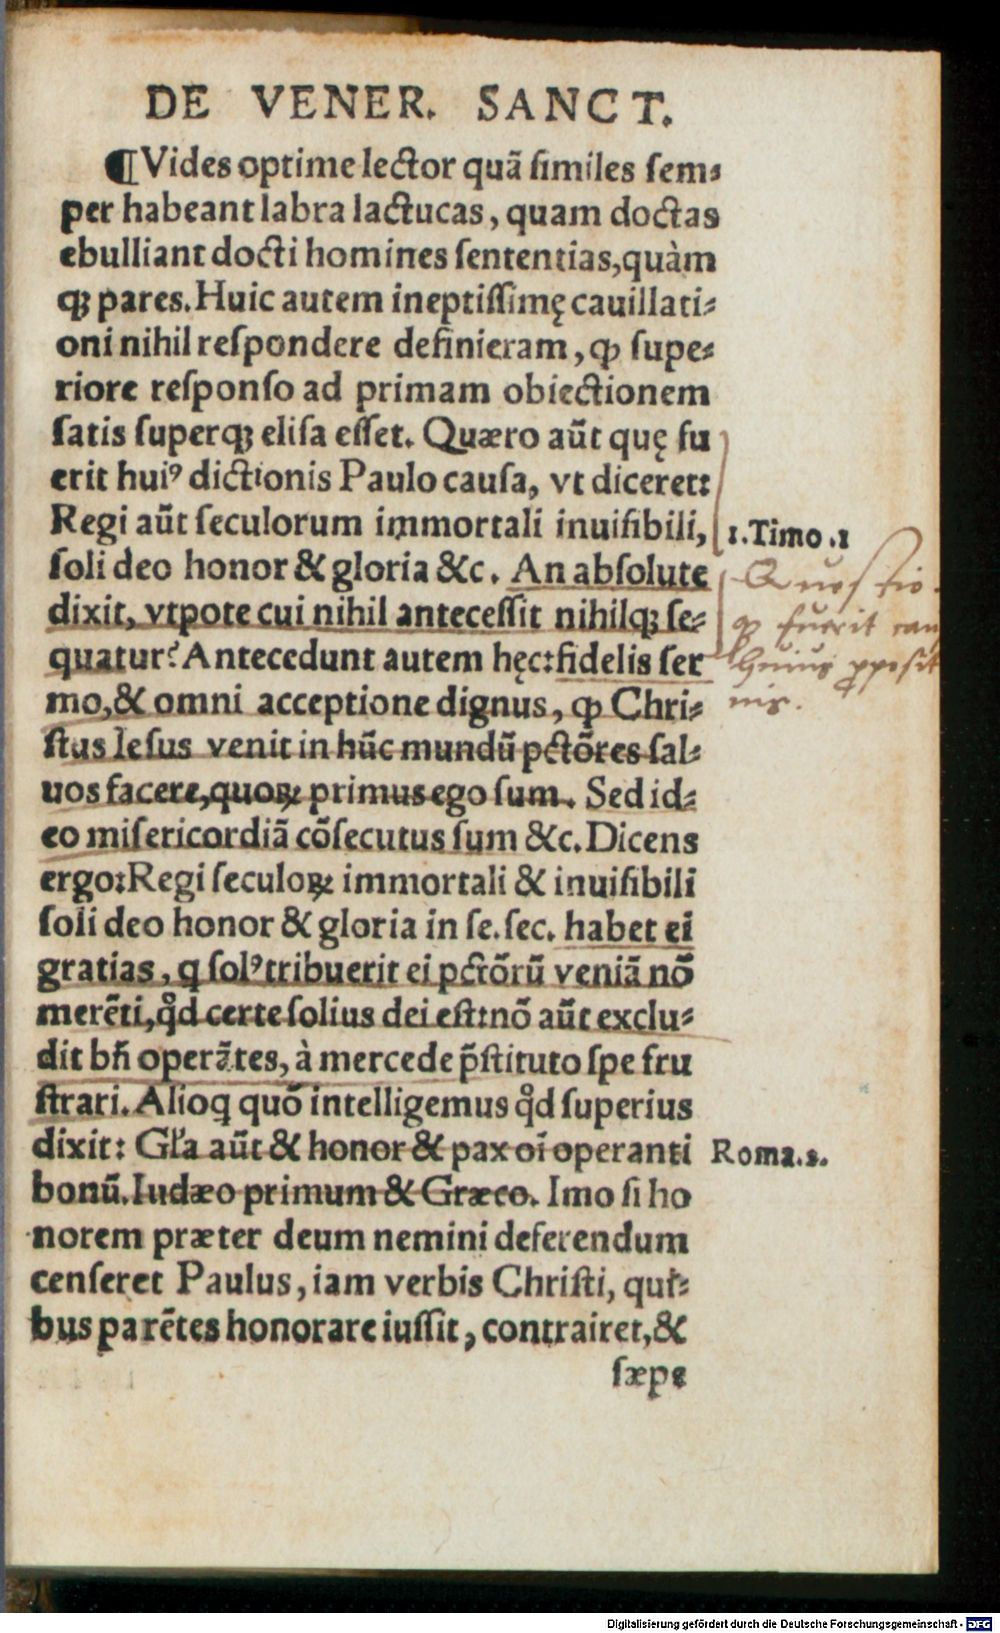 DE VENER. SANCT.
¶Vides optime lector quã similes sem⸗
per habeant labra lactucas, quam doctas
ebulliant docti homines sententias,quàm
qꝫ pares.Huic autem ineptissimę cauillati⸗
oni nihil respondere definieram, ꝙ supe⸗
riore responso ad primam obiectionem
satis superqꝫ elisa esset. Quæro aũt quę fu
erit huiꝰ dictionis Paulo causa, vt diceret:
Regi aũt seculorum immortali inuisibili,
1.Timo.1
soli deo honor & gloria &c. An absolute
dixit, vtpote cui nihil antecessit nihilqꝫ se⸗
quatur? Antecedunt autem hęc:fidelis ser
mo,& omni acceptione dignus, ꝙ Chri⸗
stus Iesus venit in hũc mundũ pctõres sal⸗
uos facere,quoꝝ primus ego sum. Sed id⸗
eo misericordiã cõsecutus sum &c. Dicens
ergo:Regi seculoꝝ immortali & inuisibili
soli deo honor & gloria in se.sec. habet ei
gratias, q solꝰ tribuerit ei pctõrũ veniã nõ
merẽti,qd certe solius dei est:nõ aũt exclu⸗
dit bñ operãtes, à mercede p̃stituto spe fru
strari. Alioq quõ intelligemus qd superius
dixit: Gľa aũt & honor & pax oĩ operanti
Roma.2.
bonũ.Iudæo primum & Græco. Imo si ho
norem præter deum nemini deferendum
censeret Paulus, iam verbis Christi, qui⸗
bus parẽtes honorare iussit, contrairet,&
sæpe
Quæstio.
ꝙ fuerit cau
huius ꝓposit
nis.
Digitalisierung gefördert durch die Deutsche Forschungsgemeinschaft - DFG